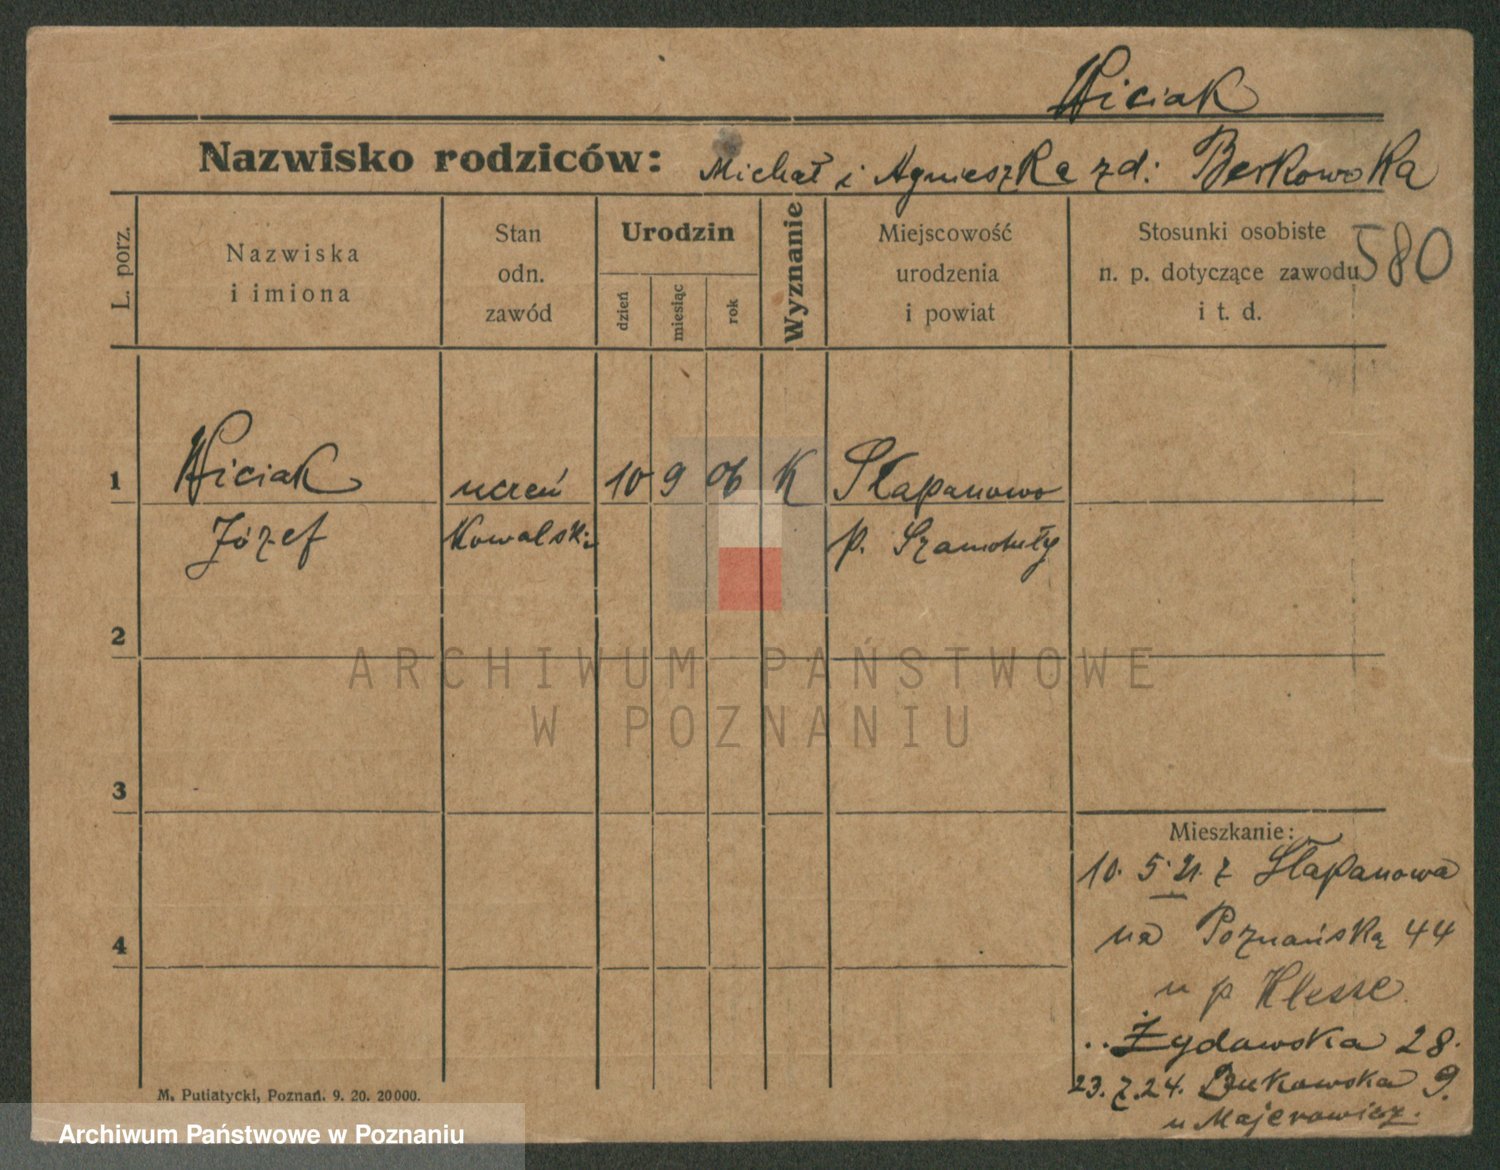 Wiciak
Nazwisko rodziców: Michał i Agnieszka zd: Berkowska
580
L. porz.
Nazwiska
i imiona
Stan
odn.
zawód
Urodzin
dzień
miesiąc
rok
Wyznanie
Miejscowość
urodzenia
i powiat
Stosunki osobiste
n. p. dotyczące zawodu
i t. d.
1 Wiciak uczeń 10 9 06 K Słapanowo
Józef Kowalski p. Szamotuły
2
3
4
Mieszkanie:
10. 5. 21. z Słapanowa
na Poznańską 44
u p
.. Żydowska 28.
23.7.24. Bukowska 9.
u Majerowicz.
M. Putiatycki, Poznań. 9. 20. 20000.
ARCHIWUM PAŃSTWOWE
W POZNANIU
Archiwum Państwowe w Poznaniu